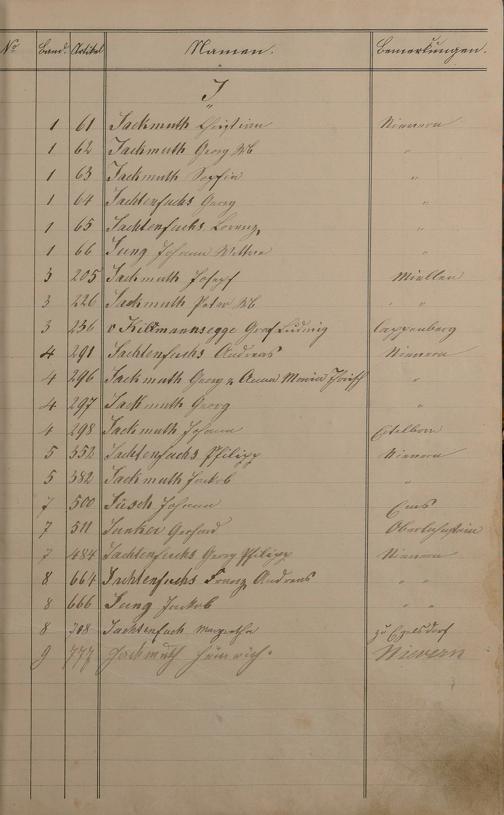 No Band. Artikel Namen. Bemerkungen.
J
1 61 Jackmuth Christian Nievern
1 62 Jackmuth Georg Wb "
1 63 Jackmuth Sophia "
1 64 Jachtenfuchs Georg "
1 65 Jachtenfuchs Lorenz "
1 66 Jung Johann Wittwe "
3 205 Jackmuth Josef Miellen
3 226 Jackmuth Peter Wb " "
3 236 v Killmannsegge Graf Ludwig Cappenberg
4 291 Jachtenfuchs Andreas Nievern
4 296 Jackmuth Georg u. Anna Maria "
4 297 Jackmuth Georg "
4 298 Jackmuth Johann
5 352 Jachtenfuchs Philipp Nievern
5 382 Jackmuth Jakob "
7 500 Johann Ems
7 511 Junker Gerhard Oberlahnstein
7 484 Jachtenfuchs Georg Philipp Nievern
8 664 Jachtenfuchs Franz Andreas " "
8 666 Jung Jackob " "
8 708 Jachtenfuch Magretha zu
9 777 Jackmuth Heinrich Nievern